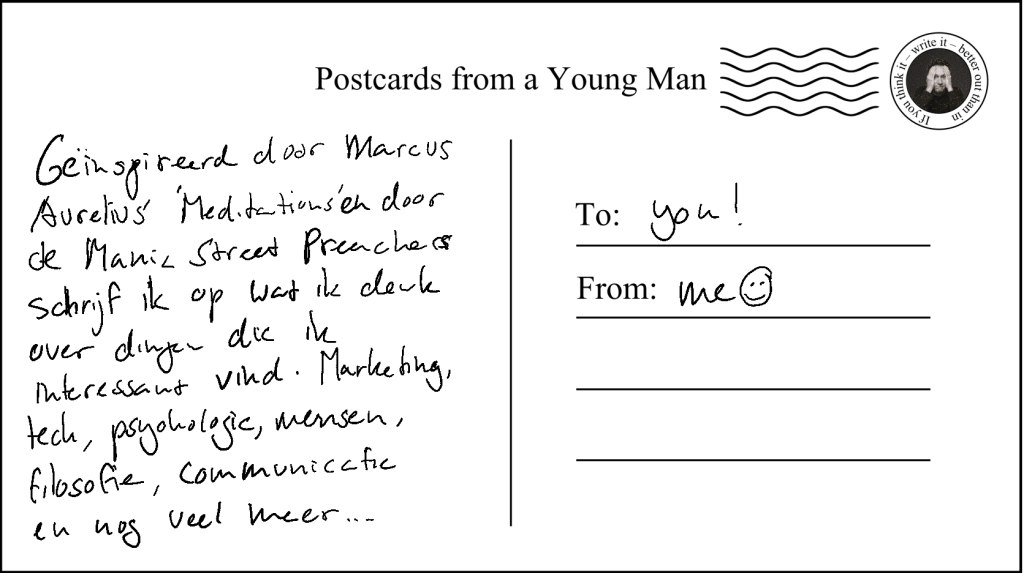 Postcards from a Young Man
If you think it – write it – better out than in
Geïnspireerd door Marcus
Aurelius' 'Meditations' en door
de Manic Street Preachers
schrijf ik op wat ik denk
over dingen die ik
interessant vind. Marketing,
tech, psychologie, mensen,
filosofie, communicatie
en nog veel meer...
To: you!
From: me☺